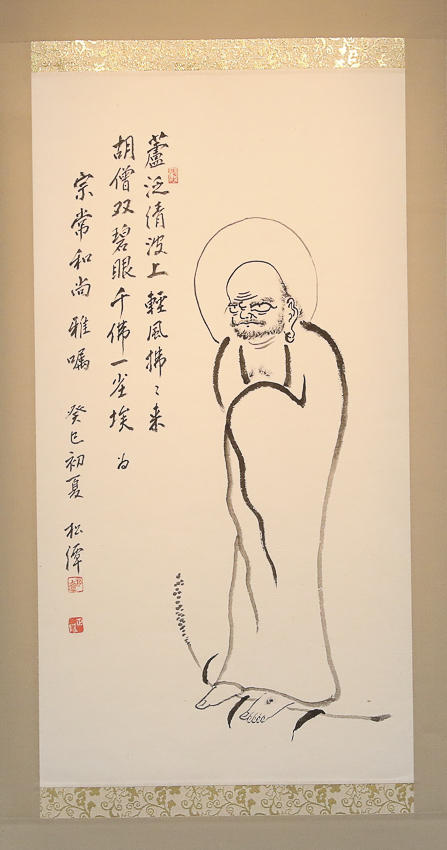 蘆泛清波上軽風拂〻来
胡僧双碧眼千佛一尘埃 为
宗常和尚雅嘱 癸巳初夏 松潭